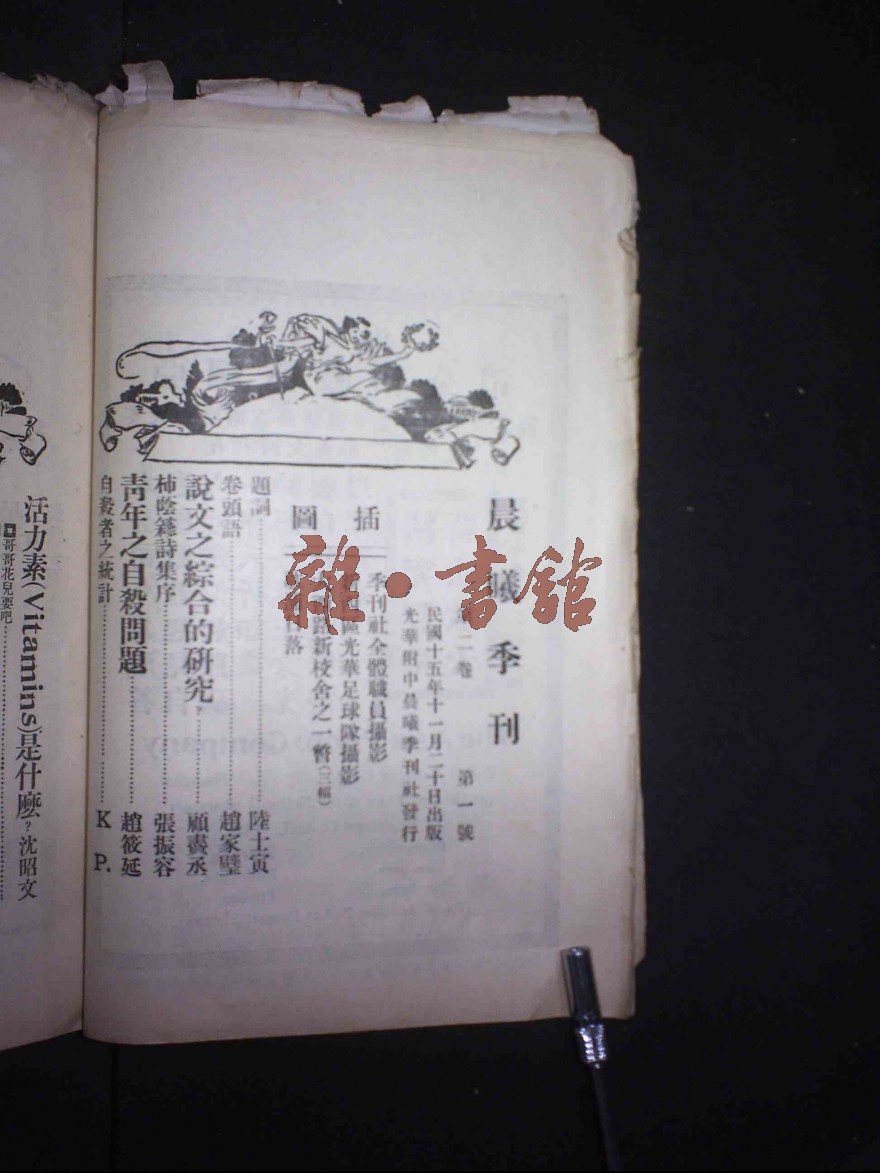 晨曦季刊
第二卷 第一號
民國十五年十一月二十日出版
光華附中晨曦季刊社發行
插圖
季刊社全體職員攝影
光華足球隊攝影
新校舍之一瞥(三幅)
落
題詞 陸士寅
卷頭語 趙家璧
說文之綜合的研究 顧書丞
張振容
詩集序
青年之自殺問題 趙筱延
自殺者之統計 K P.
活力素(Vitamins)是什麼? 沈昭文
哥哥花兒要吧
雜·書館